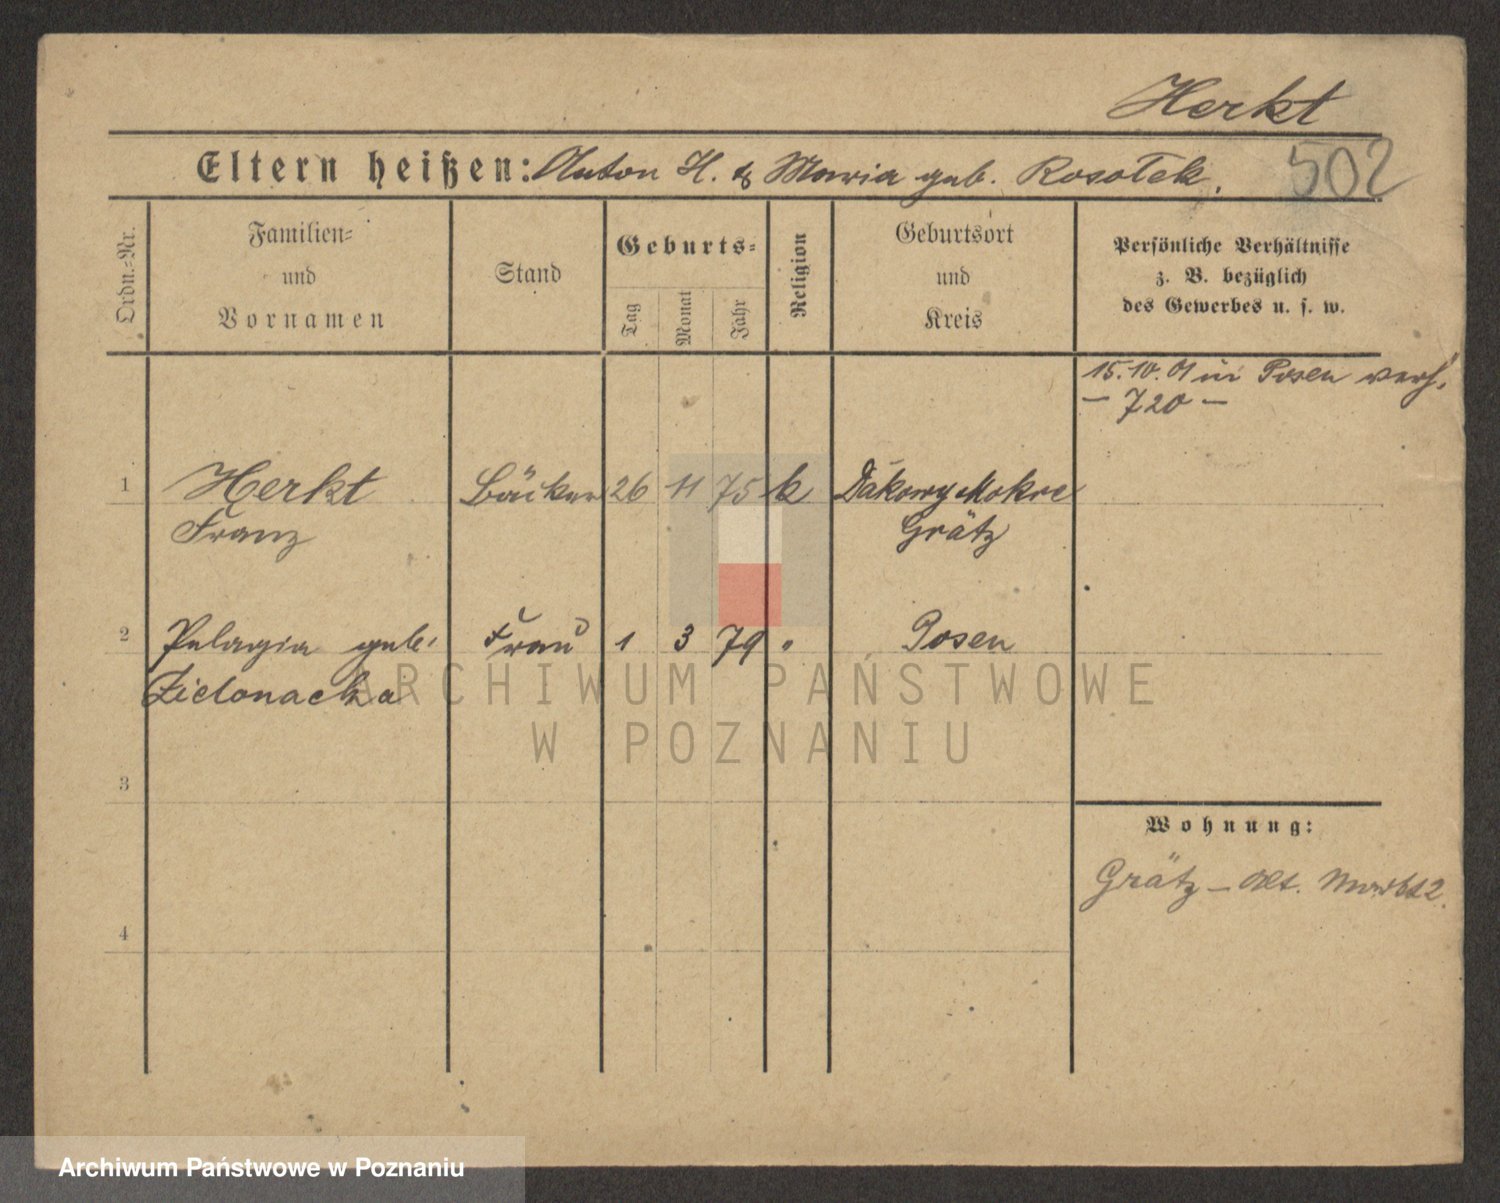 Herkt
Eltern heißen: Anton H. & Maria geb. Rosolek. 502
Ordn.-Nr.
Familien-
und
Vornamen
Stand
Geburts-
Tag
Monat
Jahr
Religion
Geburtsort
und
Kreis
Persönliche Verhältnisse
z. B. bezüglich
des Gewerbes u. s. w.
15.10.01 in Posen verh.
– 720 –
1 Herkt Bäcker 26 11 75 k Dakowy Mokre
Franz Grätz
2 Pelagia geb. Frau 1 3 79 " Posen
Zielonacka
3
4
Wohnung:
Grätz – Alt. Markt 2.
ARCHIWUM PAŃSTWOWE
W POZNANIU
Archiwum Państwowe w Poznaniu